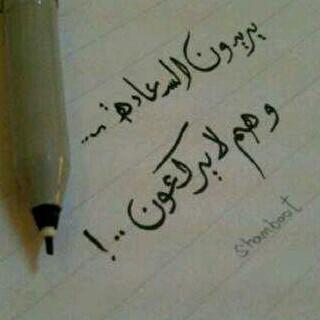 يريدون السعادة ...
وهم لا يركعون ..!
shamboot